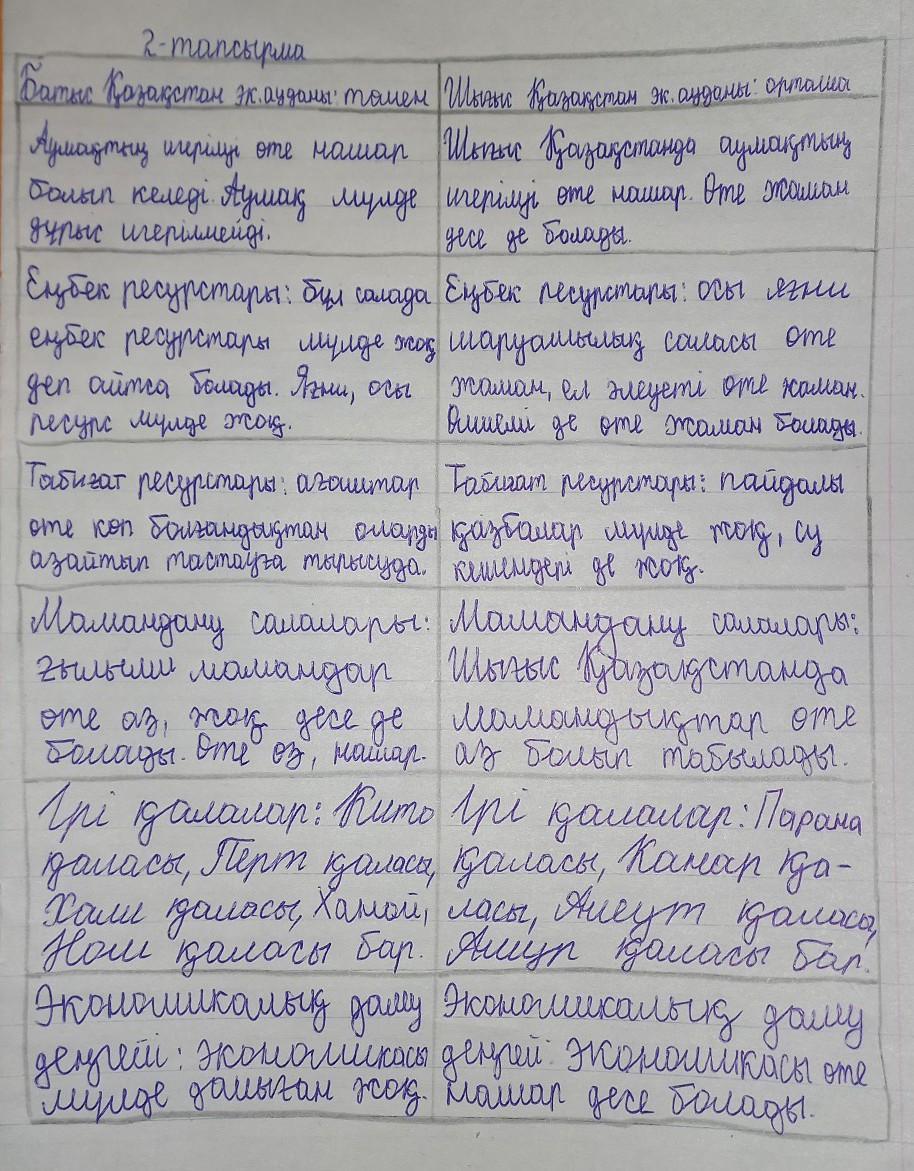 2-тапсырма
Батыс Қазақстан эк.ауданы: төмен
Аумақтың игерілуі өте нашар
болып келеді. Аумақ мүлде
дұрыс игерілмейді.
Еңбек ресурстары: бұл салада
еңбек ресурстары мүлде жоқ
деп айтса болады. Яғни, осы
ресурс мүлде жоқ.
Табиғат ресурстары: ағаштар
өте көп болғандықтан оларды
азайтып тастауға тырысуда.
Мамандану салалары:
ғылыми мамандар
өте аз, жоқ десе де
болады. Өте аз, нашар.
Ірі қалалар: Кито
қаласы, Перт қаласы,
Хали қаласы, Ханой,
Ном қаласы бар.
Экономикалық даму
деңгейі: экономикасы
мүлде дамыған жоқ.
Шығыс Қазақстан эк.ауданы: орташа
Шығыс Қазақстанда аумақтың
игерілуі өте нашар. Өте жаман
десе де болады.
Еңбек ресурстары: осы яғни
шаруашылық саласы өте
жаман, ел әлеуеті өте жаман.
Өнімі де өте жаман болады.
Табиғат ресурстары: пайдалы
қазбалар мүлде жоқ, су
кешендері де жоқ.
Мамандану салалары:
Шығыс Қазақстанда
мамандықтар өте
аз болып табылады.
Ірі қалалар: Парана
қаласы, Канар қа-
ласы, Алеут қаласы,
Амур қаласы бар.
Экономикалық даму
деңгей: экономикасы өте
нашар десе болады.